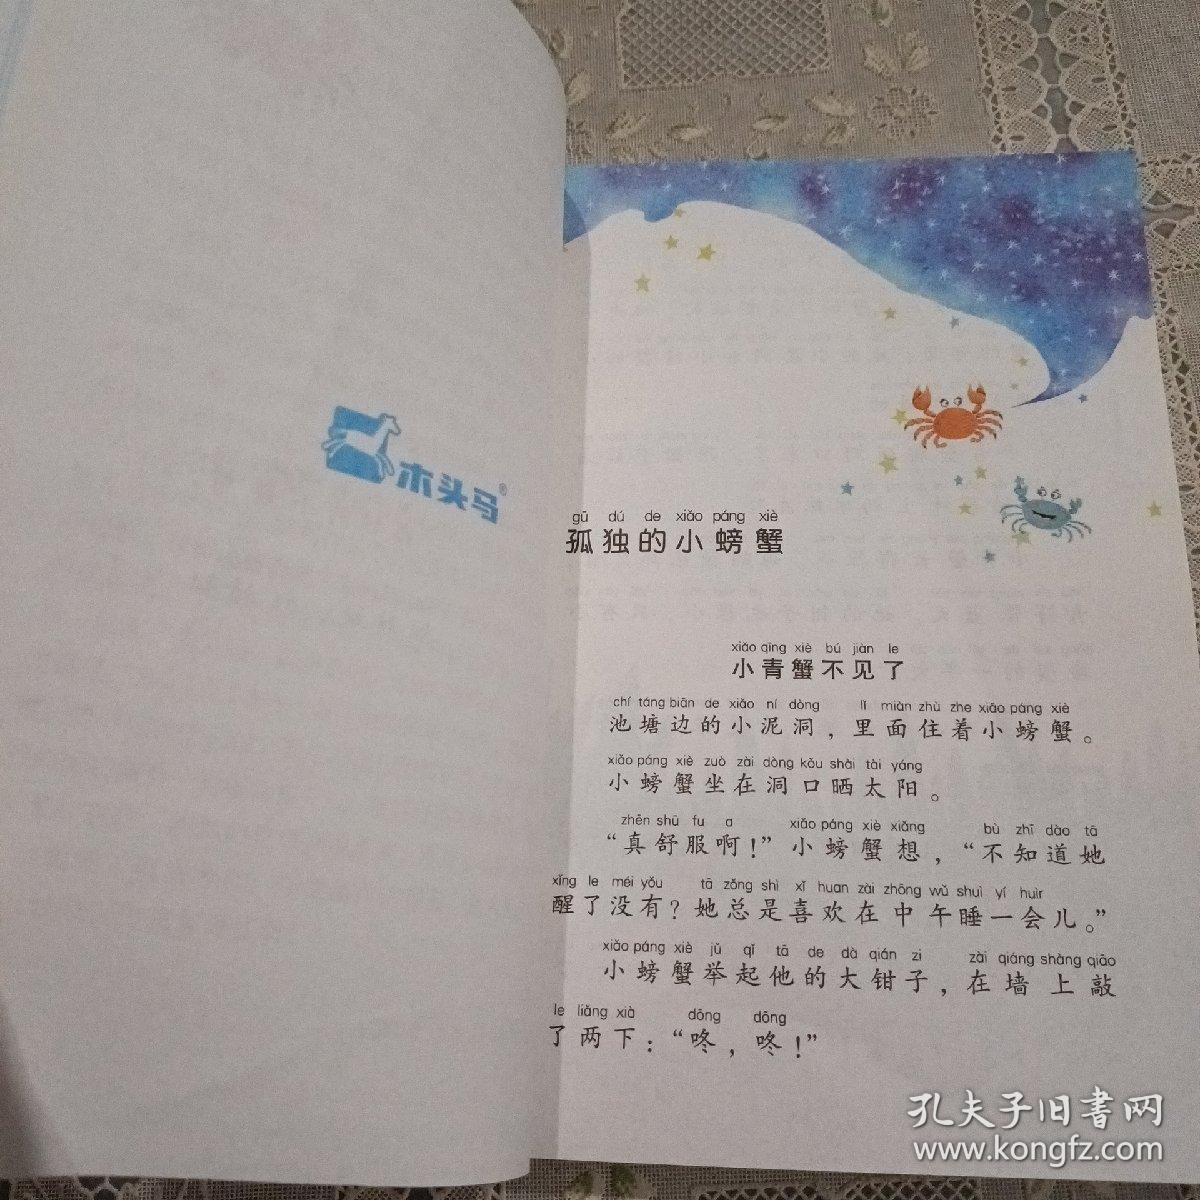 木头马®
gū dú de xiǎo páng xiè
孤独的小螃蟹
xiǎo qīng xiè bú jiàn le
小青蟹不见了
chí táng biān de xiǎo ní dòng lǐ miàn zhù zhe xiǎo páng xiè
池塘边的小泥洞，里面住着小螃蟹。
xiǎo páng xiè zuò zài dòng kǒu shài tài yáng
小螃蟹坐在洞口晒太阳。
zhēn shū fu a xiǎo páng xiè xiǎng bù zhī dào tā
“真舒服啊！”小螃蟹想，“不知道她
xǐng le méi yǒu tā zǒng shì xǐ huan zài zhōng wǔ shuì yí huìr
醒了没有？她总是喜欢在中午睡一会儿。”
xiǎo páng xiè jǔ qǐ tā de dà qián zi zài qiáng shàng qiāo
小螃蟹举起他的大钳子，在墙上敲
le liǎng xià dōng dōng
了两下：“咚，咚！”
孔夫子旧书网
www.kongfz.com